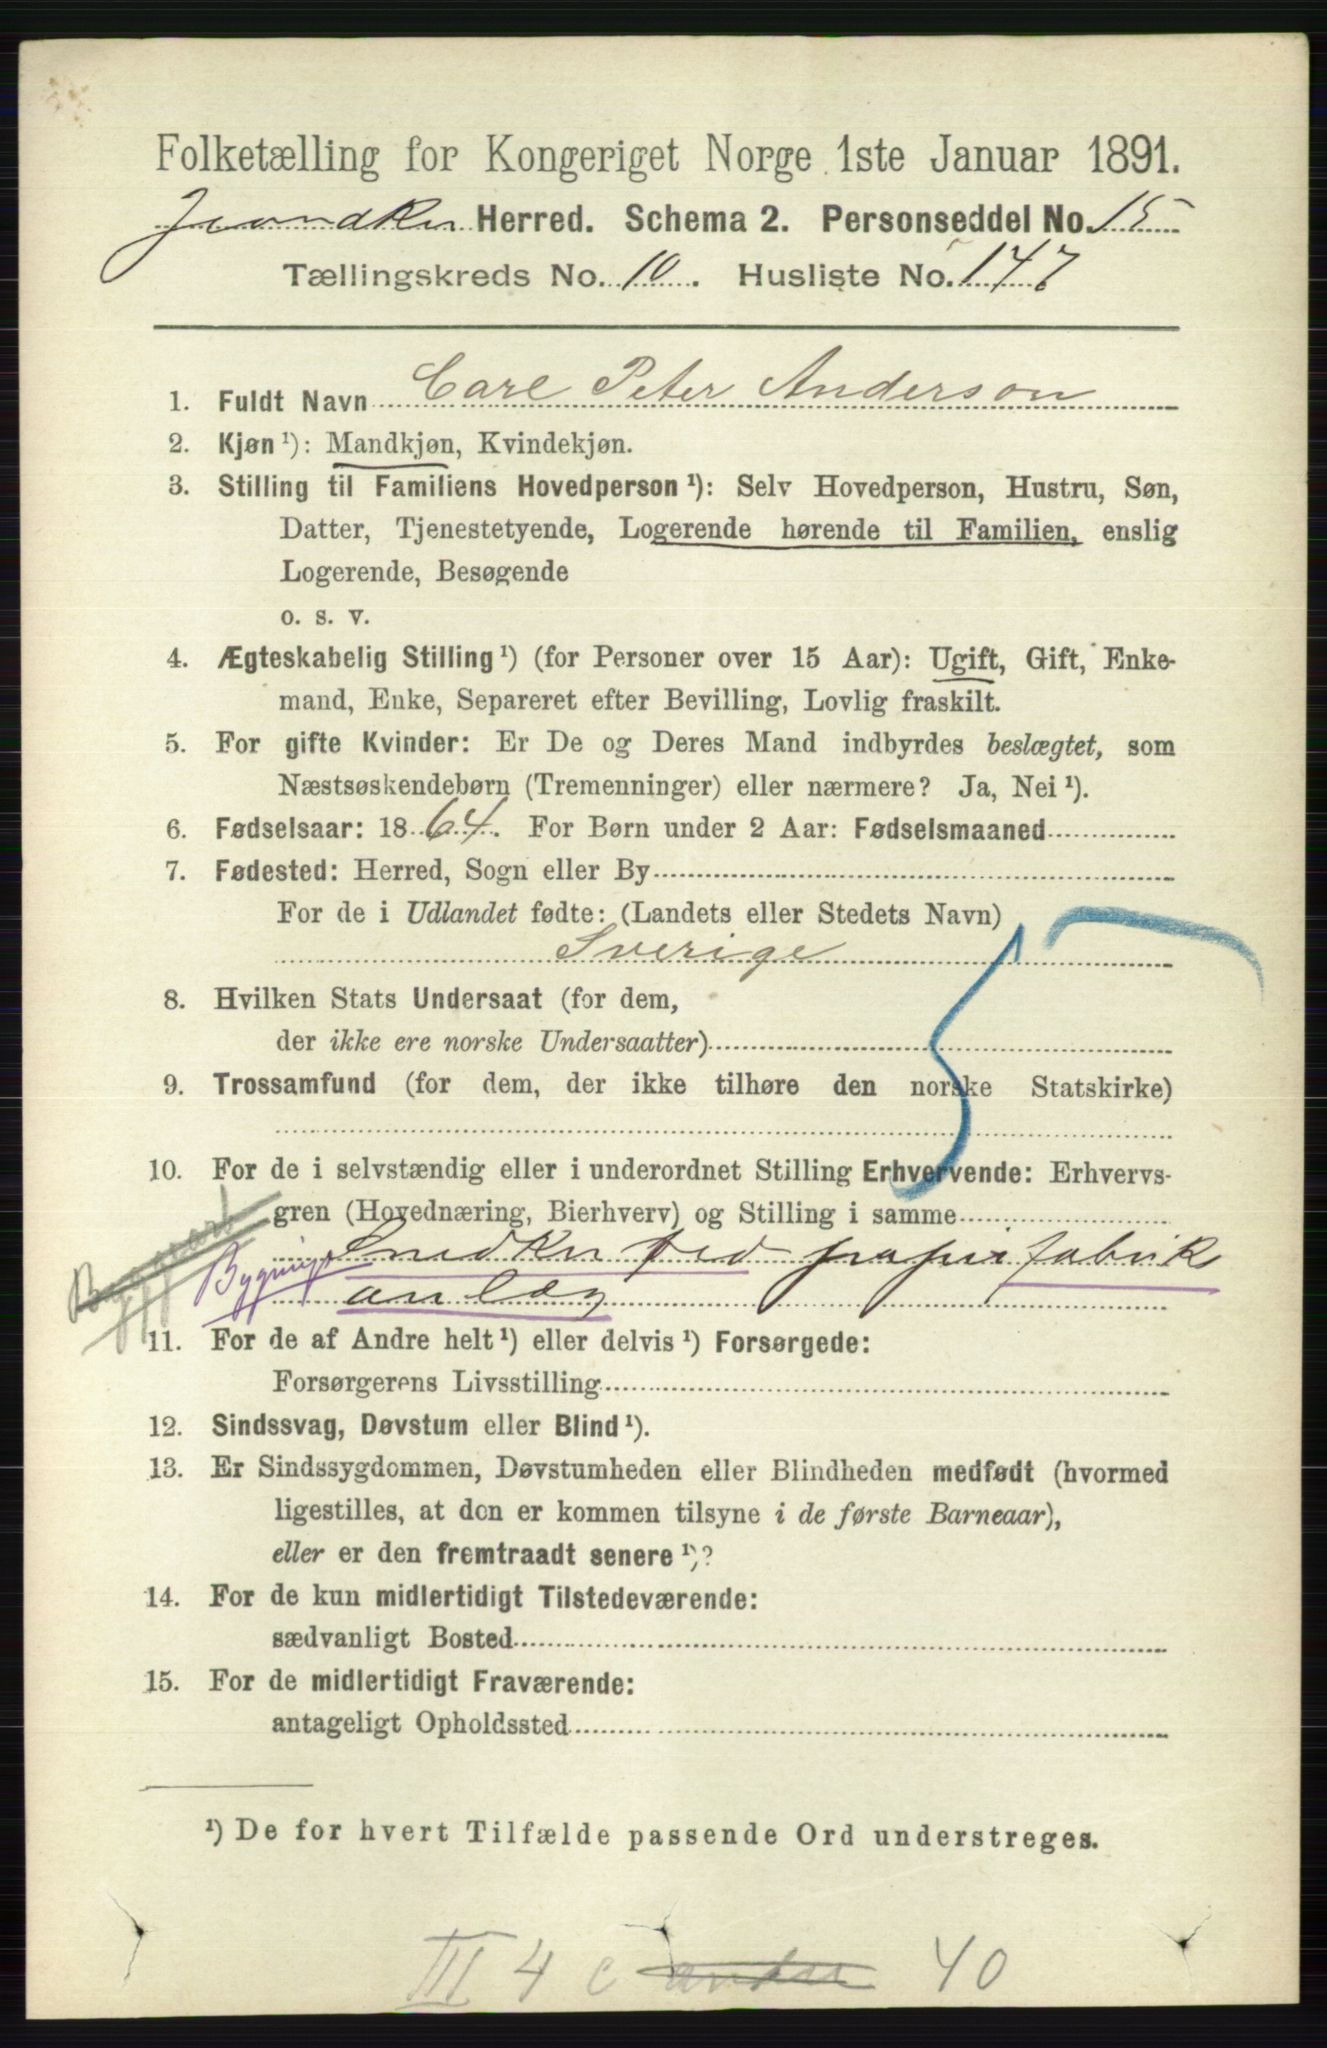 Folketælling for Kongeriget Norge 1ste Januar 1891.
Herred. Schema 2. Personseddel No. 15
Tællingskreds No. 10. Husliste No. 147
1. Fuldt Navn Carl Peter Anderson
2. Kjøn ¹): Mandkjøn, Kvindekjøn.
3. Stilling til Familiens Hovedperson ¹): Selv Hovedperson, Hustru, Søn,
Datter, Tjenestetyende, Logerende hørende til Familien, enslig
Logerende, Besøgende
o. s. v.
4. Ægteskabelig Stilling ¹) (for Personer over 15 Aar): Ugift, Gift, Enke-
mand, Enke, Separeret efter Bevilling, Lovlig fraskilt.
5. For gifte Kvinder: Er De og Deres Mand indbyrdes beslægtet, som
Næstsøskendebørn (Tremenninger) eller nærmere? Ja, Nei ¹).
6. Fødselsaar: 1864. For Børn under 2 Aar: Fødselsmaaned
7. Fødested: Herred, Sogn eller By
For de i Udlandet fødte: (Landets eller Stedets Navn)
Sverige
8. Hvilken Stats Undersaat (for dem,
der ikke ere norske Undersaatter)
9. Trossamfund (for dem, der ikke tilhøre den norske Statskirke)
10. For de i selvstændig eller i underordnet Stilling Erhvervende: Erhvervs-
gren (Hovednæring, Bierhverv) og Stilling i samme
Bygnings Snedker ved papir fabrik
anlæg
11. For de af Andre helt ¹) eller delvis ¹) Forsørgede:
Forsørgerens Livsstilling
12. Sindssvag, Døvstum eller Blind ¹).
13. Er Sindssygdommen, Døvstumheden eller Blindheden medfødt (hvormed
ligestilles, at den er kommen tilsyne i de første Barneaar),
eller er den fremtraadt senere ¹)?
14. For de kun midlertidigt Tilstedeværende:
sædvanligt Bosted
15. For de midlertidigt Fraværende:
antageligt Opholdssted
¹) De for hvert Tilfælde passende Ord understreges.
III 4 c 40